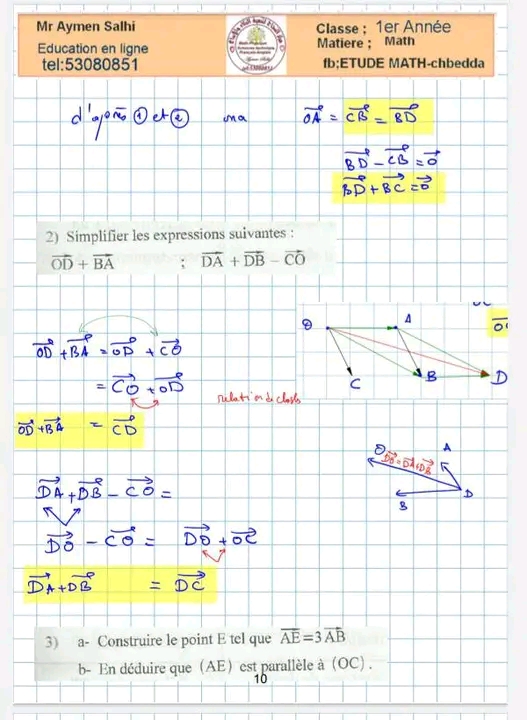 Mr Aymen Salhi
Education en ligne
tel:53080851
Classe ; 1er Année
Matiere ; Math
fb;ETUDE MATH-chbedda
d'après ① et ② ona OA = CB = BD
BD - CB = 0
BD + BC = 0
2) Simplifier les expressions suivantes :
OD + BA ; DA + DB − CO
O A
C B D
OD + BA = OD + CO
= CO + OD
relation de chasles
OD + BA = CD
DO = DA + DB
O A
B D
DA + DB - CO =
DO - CO = DO + OC
DA + DB = DC
3) a- Construire le point E tel que AE=3AB
b- En déduire que (AE) est parallèle à (OC).
10